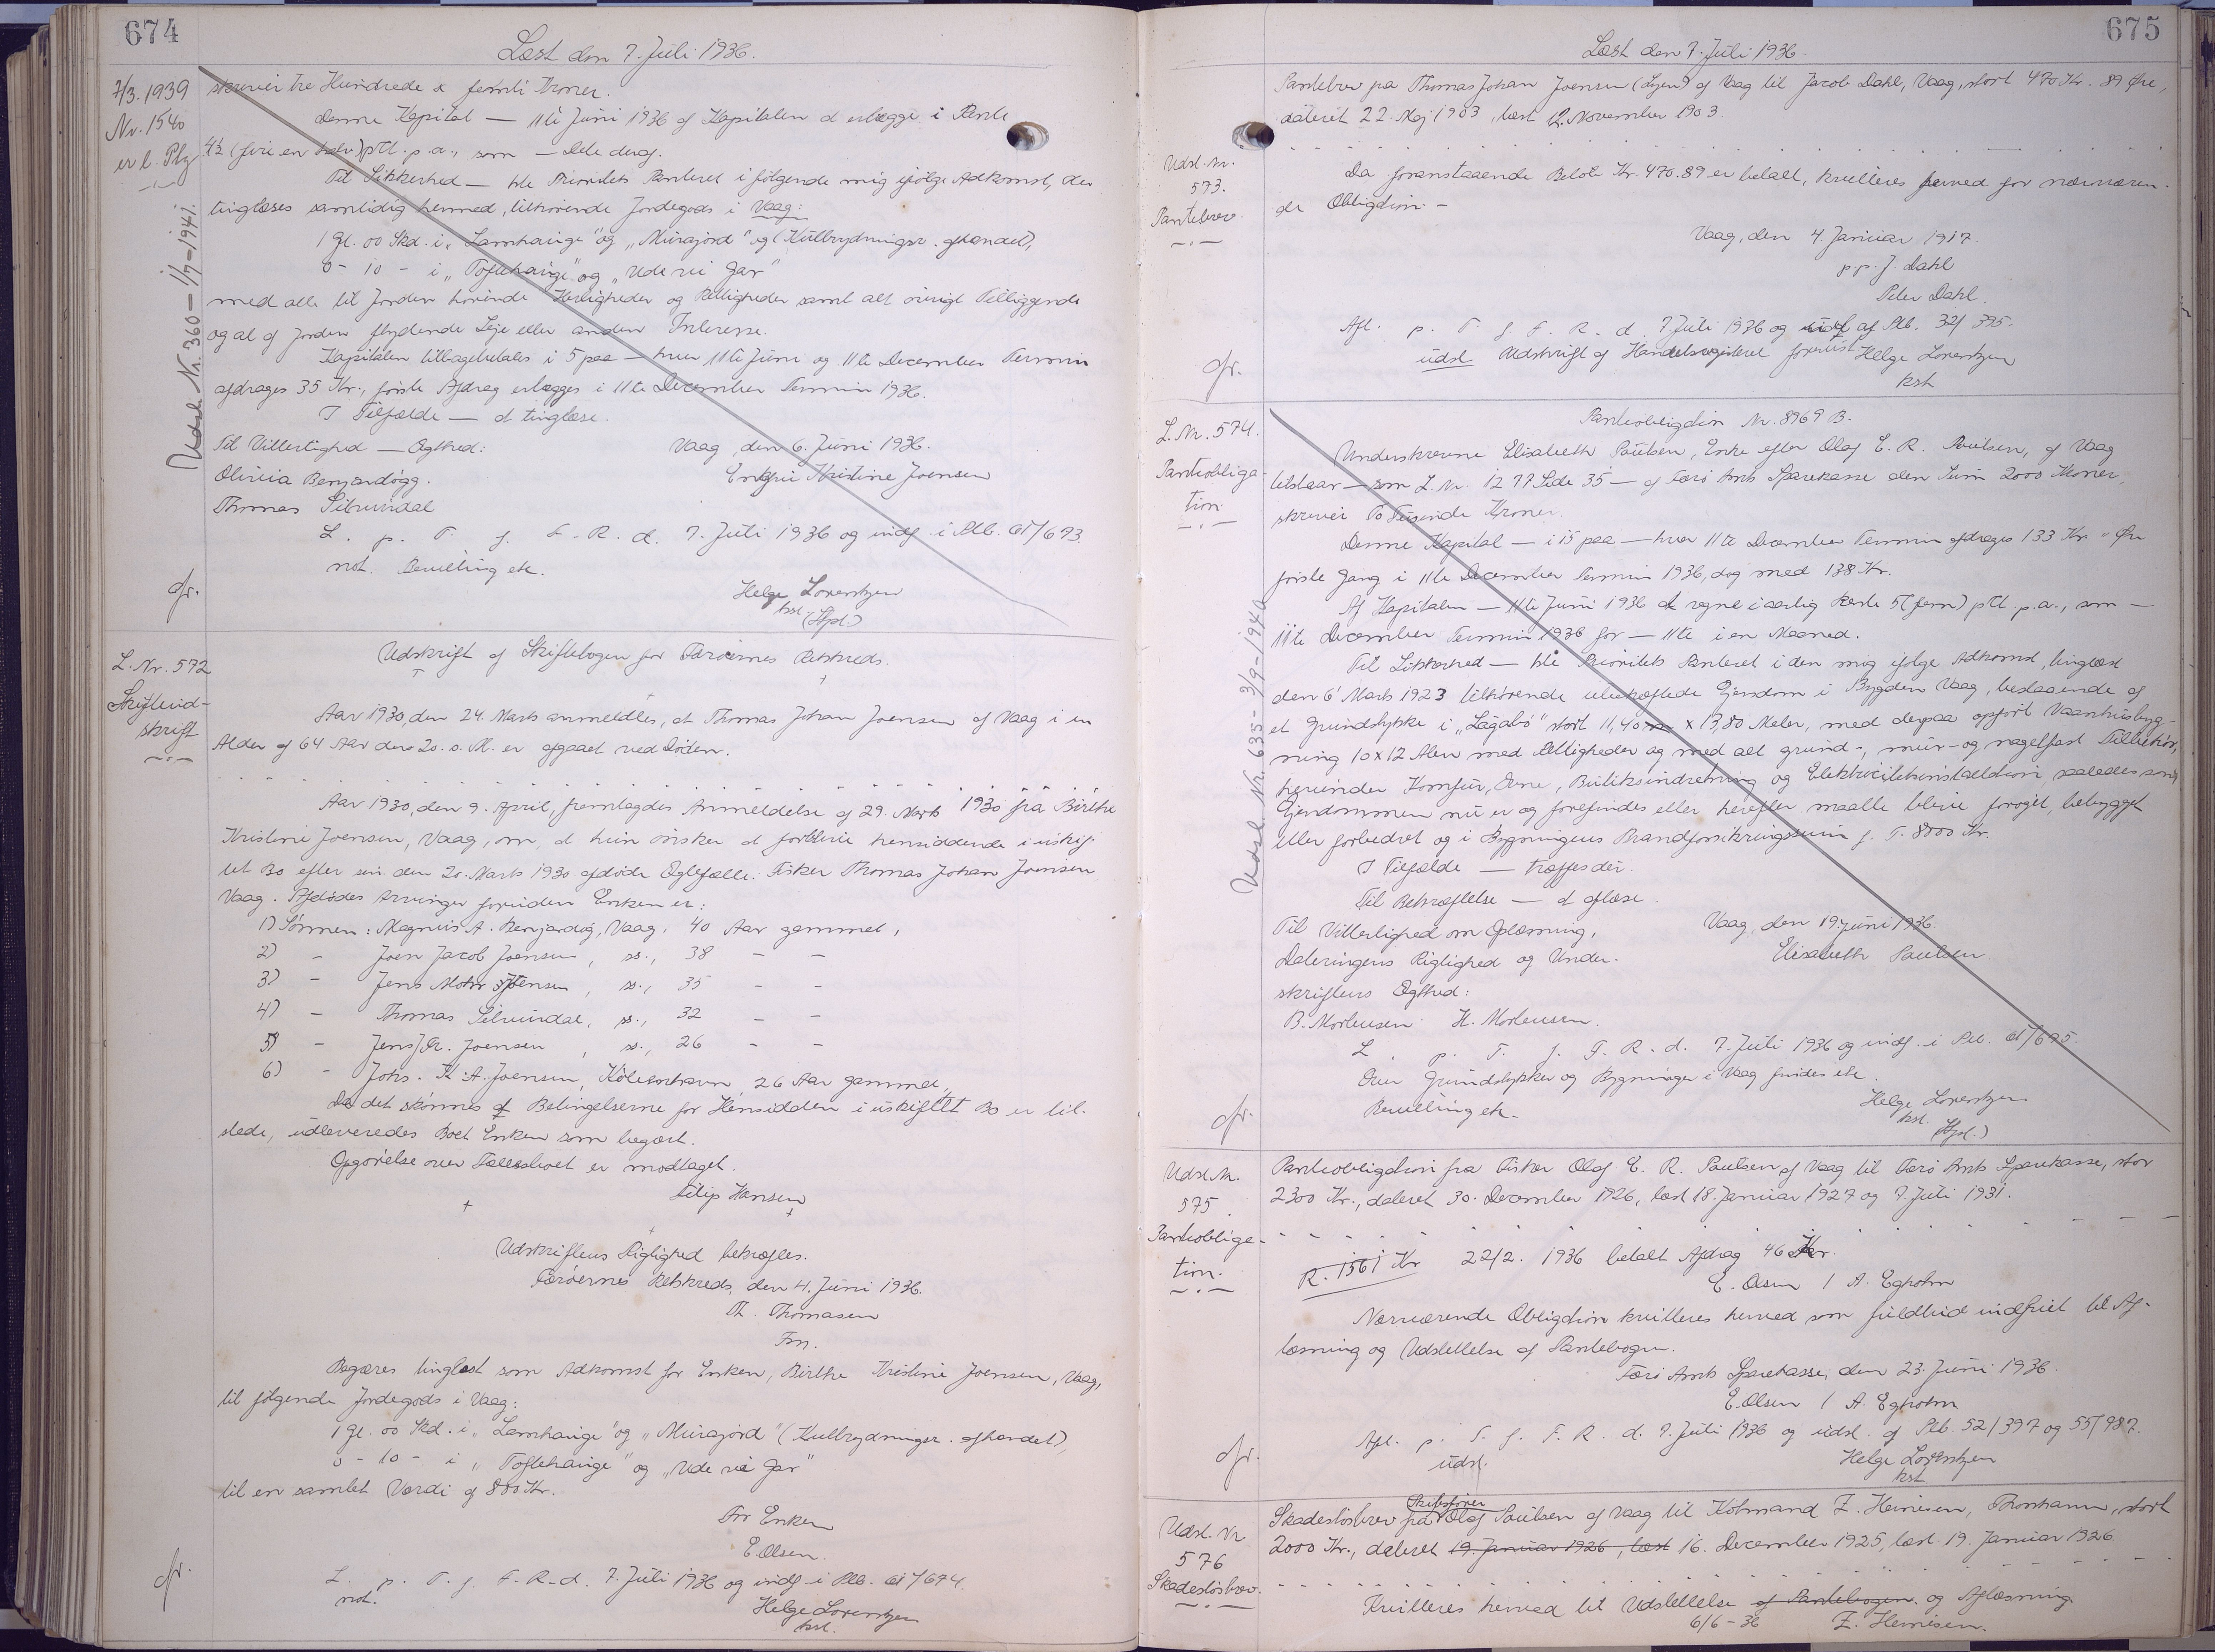 674
Læst den 7. Juli 1936.
7/3. 1939
Nr. 1540
er l. Plz
Udsl. Nr. 360 - 1/7 - 1941.
skriver tre Hundrede & femti Kroner.
Denne Kapital — 11te Juni 1936 af Kapitalen at erlægge i Rente
4½ (fire en halv) pCt. p.a., som — Dele deraf.
Til Sikkerhed — 1ste Prioritets Panteret i følgende mig ifølge Adkomst, der
tinglæses samtidig hermed, tilhørende Jordegods i Vaag:
1 Gl. 00 Skd. i „Lamhauge" og „Murajord" og (Kulbrydninger. afhændet),
0 - 10 - i „Toftehauge" og „Ude vié Gar"
med alle til Jorden hørende Herligheder og Rettigheder samt alt øvrigt Tilliggende
og al af Jorden flydende Leje eller anden Interesse.
Kapitalen tilbagebetales i 5 paa — hver 11te Juni og 11te December Termin
afdrages 35 Kr., første Afdrag erlægges i 11te December Termin 1936.
I Tilfælde — at tinglæse.
Til Vitterlighed — Ægthed:
Vaag, den 6. Juni 1936.
Olivia Benjardøgg.
Enkefru Kristine Joensen
Thomas Silvurdal
L. p. T. f. F. R. d. 7. Juli 1936 og indf. i Plb. 61/693.
not. Bevilling etc.
Helge Lorentzen
kst. (Hpl.)
cfr.
L. Nr. 572
Skifteud-
skrift
Udskrift af Skiftebogen for Færøernes Retskreds.
Aar 1930, den 24. Marts anmeldtes, at Thomas Johan Joensen af Vaag i en
Alder af 64 Aar den 20. s. M. er afgaaet ved Døden.
Aar 1930, den 9. April, fremlagdes Anmeldelse af 29. Marts 1930 fra Birthe
Kristine Joensen, Vaag, om, at hun ønsker at forblive hensiddende i uskif-
tet Bo efter sin den 20. Marts 1930 afdøde Ægtefælle: Fisker Thomas Johan Joensen
Vaag. Afdødes Arvinger foruden Enken er:
1) Sønnen: Magnus A. Benjardøg, Vaag, 40 Aar gammel,
2) - Joen Jacob Joensen, ss., 38 - -
3) - Jens Mohr Joensen, ss., 35 - -
4) - Thomas Silvurdal, ss., 32 - -
5) - Jens Fr. Joensen, ss., 26 - -
6) - Johs. K. A. Joensen, København, 26 Aar gammel,
Da det skønnes at Betingelserne for Hensidden i uskiftet Bo er til-
stede, udleveredes Boet Enken som begært.
Opgørelse over Fællesboet er modtaget.
Filip Hansen
Udskriftens Rigtighed bekræftes.
Færøernes Retskreds, den 4. Juni 1936.
Th. Thomasen
Fm.
Begæres tinglæst som Adkomst for Enken, Birthe Kristine Joensen, Vaag,
til følgende Jordegods i Vaag:
1 Gl. 00 Skd. i „Lamhauge" og „Murajord" (Kulbrydninger. afhændet),
0 - 10 - i „Toftehauge" og „Ude vié Gar"
til en samlet Værdi af 800 Kr.
For Enken
E. Olsen.
L. p. T. f. F. R. d. 7. Juli 1936 og indf. i Plb. 61/694.
not.
Helge Lorentzen
kst.
cfr.
675
Læst den 7. Juli 1936.
Udsl. Nr.
573.
Pantebrev.
Pantebrev fra Thomas Johan Joensen (Lyen) af Vaag til Jacob Dahl, Vaag, stort 470 Kr. 89 Øre,
dateret 22. Maj 1903, læst 12. November 1903.
Da foranstaaende Beløb Kr. 470.89 er betalt, kvitteres herved for nærværen-
de Obligation. -
Vaag, den 4. Januar 1917.
p.p. J. Dahl
Peter Dahl.
Afl. p. T. f. F. R. d. 7 Juli 1936 og udsl. af Plb. 32/395.
udsl. Udskrift af Handelsregisteret forevist
Helge Lorentzen
kst
cfr.
L. Nr. 574.
Pantobliga-
tion
Udsl. Nr. 635 - 3/9 - 1940
Panteobligation Nr. 8969 B.
Underskrevne Elisabeth Poulsen, Enke efter Olaf E. R. Poulsen, af Vaag
tilstaar — som L. Nr. 1277 Side 35 — af Færø Amts Sparekasse den Sum 2000 Kroner,
skriver To Tusinde Kroner.
Denne Kapital — i 15 paa — hver 11te December Termin afdrages 133 Kr. " Øre
første Gang i 11te December Termin 1936, dog med 138 Kr.
Af Kapitalen — 11te Juni 1936 at regne i aarlig Rente 5 (fem) pCt. p.a., som —
11te December Termin 1936 for — 11te i en Maaned.
Til Sikkerhed — 1ste Prioritets Panteret i den mig ifølge Adkomst, tinglæst
den 6' Marts 1923 tilhørende ubehæftede Ejendom i Bygden Vaag, bestaaende af
et Grundstykke i „Lágabø" stort 11,40 m x 13,80 Meter, med derpaa opført Vaaningsbyg-
ning 10 x 12 Alen med Rettigheder og med alt grund-, mur- og nagelfast Tilbehør,
herunder Komfur, Ovne, Butiksindretning og Elektricitetsinstallation, saaledes som
Ejendommen nu er og forefindes eller herefter maatte blive forøget, bebygget
eller forbedret og i Bygningens Brandforsikringssum f. T. 8000 Kr.
I Tilfælde — træffes der.
Til Bekræftelse — at aflæse.
Til Vitterlighed om Oplæsning,
Vaag, den 19. Juni 1936.
Dateringens Rigtighed og Under-
Elisabeth Poulsen
skriftens Ægthed:
B. Mortensen H. Mortensen.
L. p. T. f. F. R. d. 7. Juli 1936 og indf. i Plb. 61/695.
Over Grundstykker og Bygninger i Vaag findes etc.
Bevilling etc.
Helge Lorentzen
kst.
(Hpl.)
cfr.
Udsl. Nr.
575.
Pantobliga-
tion.
Panteobligation fra Fisker Olaf E. R. Poulsen af Vaag til Færø Amts Sparekasse, stor
2300 Kr., dateret 30. December 1926, læst 18. Januar 1927 og 7. Juli 1931.
R. 1561 Kr 22/2. 1936 betalt Afdrag 46 Kr.
E. Olsen / A. Egholm
Nærværende Obligation kvitteres herved som fuldtud indfriet til Af-
læsning og Udslettelse af Pantebogen.
Færø Amts Sparekasse, den 23. Juni 1936.
E. Olsen / A. Egholm
Afl. p. T. f. F. R. d. 7. Juli 1936 og udsl. af Plb. 52/397 og 55/987.
udsl.
Helge Lorentzen
kst
cfr.
Udsl. Nr
576
Skadesløsbrev.
Skadesløsbrev fra Skibsfører Olaf Poulsen af Vaag til Købmand Z. Heinesen, Thorshavn, stort
2000 Kr., dateret 19. Januar 1926, læst 16. December 1925, læst 19. Januar 1926.
Kvitteres herved til Udslettelse af Pantebogen. og Aflæsning
6/6 - 36 Z. Heinesen.